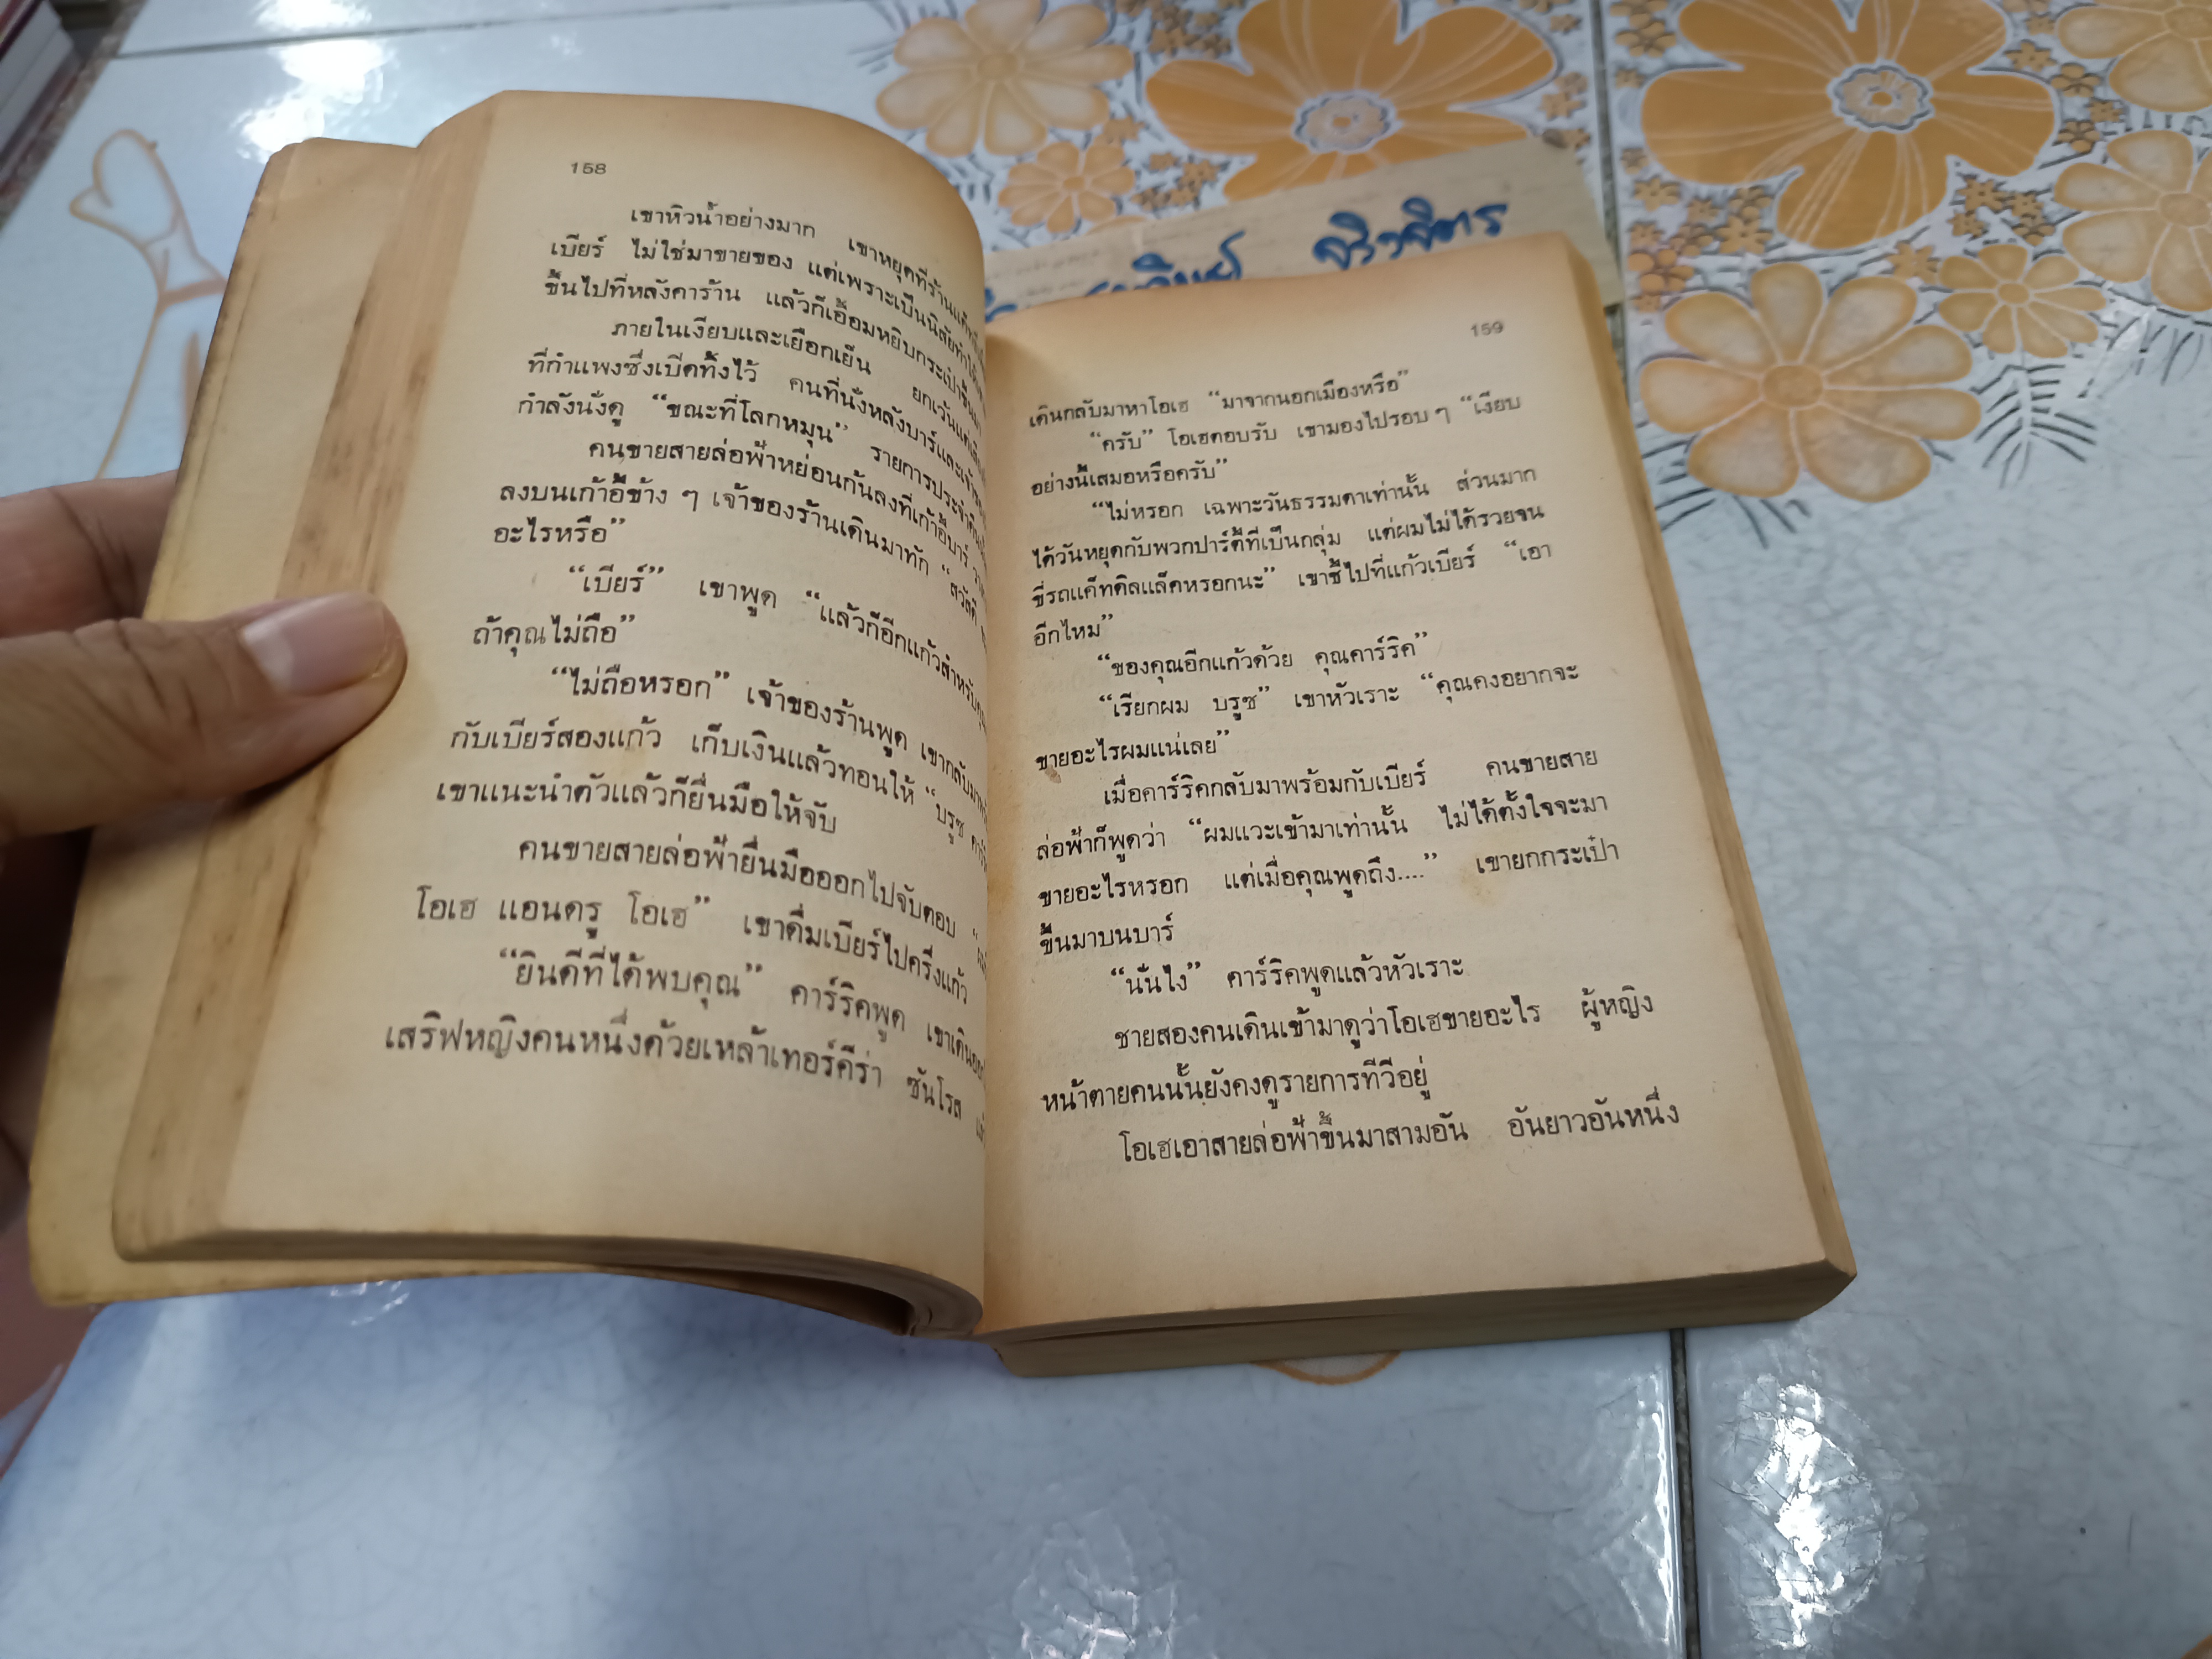 158
เขาหิวน้ำอย่างมาก เขาหยุดที่ร้าน
เบียร์ ไม่ใช่มาขายของ แต่เพราะเป็นนิสัยทำให้
ขึ้นไปที่หลังคาร้าน แล้วก็เอื้อมหยิบกระเป๋าขึ้นมา
ภายในเงียบและเยือกเย็น ยกเว้นแต่เสียง
ที่กำแพงซึ่งเปิดทิ้งไว้ คนที่นั่งหลังบาร์และเจ้าของ
กำลังนั่งดู “ขณะที่โลกหมุน” รายการประจำ
คนขายสายล่อฟ้าหย่อนก้นลงที่เก้าอี้บาร์
ลงบนเก้าอี้ข้าง ๆ เจ้าของร้านเดินมาทัก “สวัสดี
อะไรหรือ”
“เบียร์” เขาพูด “แล้วก็อีกแก้วสำหรับคุณ
ถ้าคุณไม่ถือ”
“ไม่ถือหรอก” เจ้าของร้านพูด เขากลับมาพร้อม
กับเบียร์สองแก้ว เก็บเงินแล้วทอนให้ “บรูซ
เขาแนะนำตัวแล้วก็ยื่นมือให้จับ
คนขายสายล่อฟ้ายื่นมือออกไปจับตอบ
โอเฮ แอนดรู โอเฮ” เขาดื่มเบียร์ไปครึ่งแก้ว
“ยินดีที่ได้พบคุณ” คาร์ริคพูด เขาเดิน
เสริฟหญิงคนหนึ่งด้วยเหล้าเทอร์คีร่า ซันโรส
159
เดินกลับมาหาโอเฮ “มาจากนอกเมืองหรือ”
“ครับ” โอเฮตอบรับ เขามองไปรอบ ๆ “เงียบ
อย่างนี้เสมอหรือครับ”
“ไม่หรอก เฉพาะวันธรรมดาเท่านั้น ส่วนมาก
ได้วันหยุดกับพวกปาร์ตี้ที่เป็นกลุ่ม แต่ผมไม่ได้รวยจน
ขี่รถแค็ทดิลแล็คหรอกนะ” เขาชี้ไปที่แก้วเบียร์ “เอา
อีกไหม”
“ของคุณอีกแก้วด้วย คุณคาร์ริค”
“เรียกผม บรูซ” เขาหัวเราะ “คุณคงอยากจะ
ขายอะไรผมแน่เลย”
เมื่อคาร์ริคกลับมาพร้อมกับเบียร์ คนขายสาย
ล่อฟ้าก็พูดว่า “ผมแวะเข้ามาเท่านั้น ไม่ได้ตั้งใจจะมา
ขายอะไรหรอก แต่เมื่อคุณพูดถึง....” เขายกกระเป๋า
ขึ้นมาบนบาร์
“นั่นไง” คาร์ริคพูดแล้วหัวเราะ
ชายสองคนเดินเข้ามาดูว่าโอเฮขายอะไร ผู้หญิง
หน้าตายคนนั้นยังคงดูรายการทีวีอยู่
โอเฮเอาสายล่อฟ้าขึ้นมาสามอัน อันยาวอันหนึ่ง